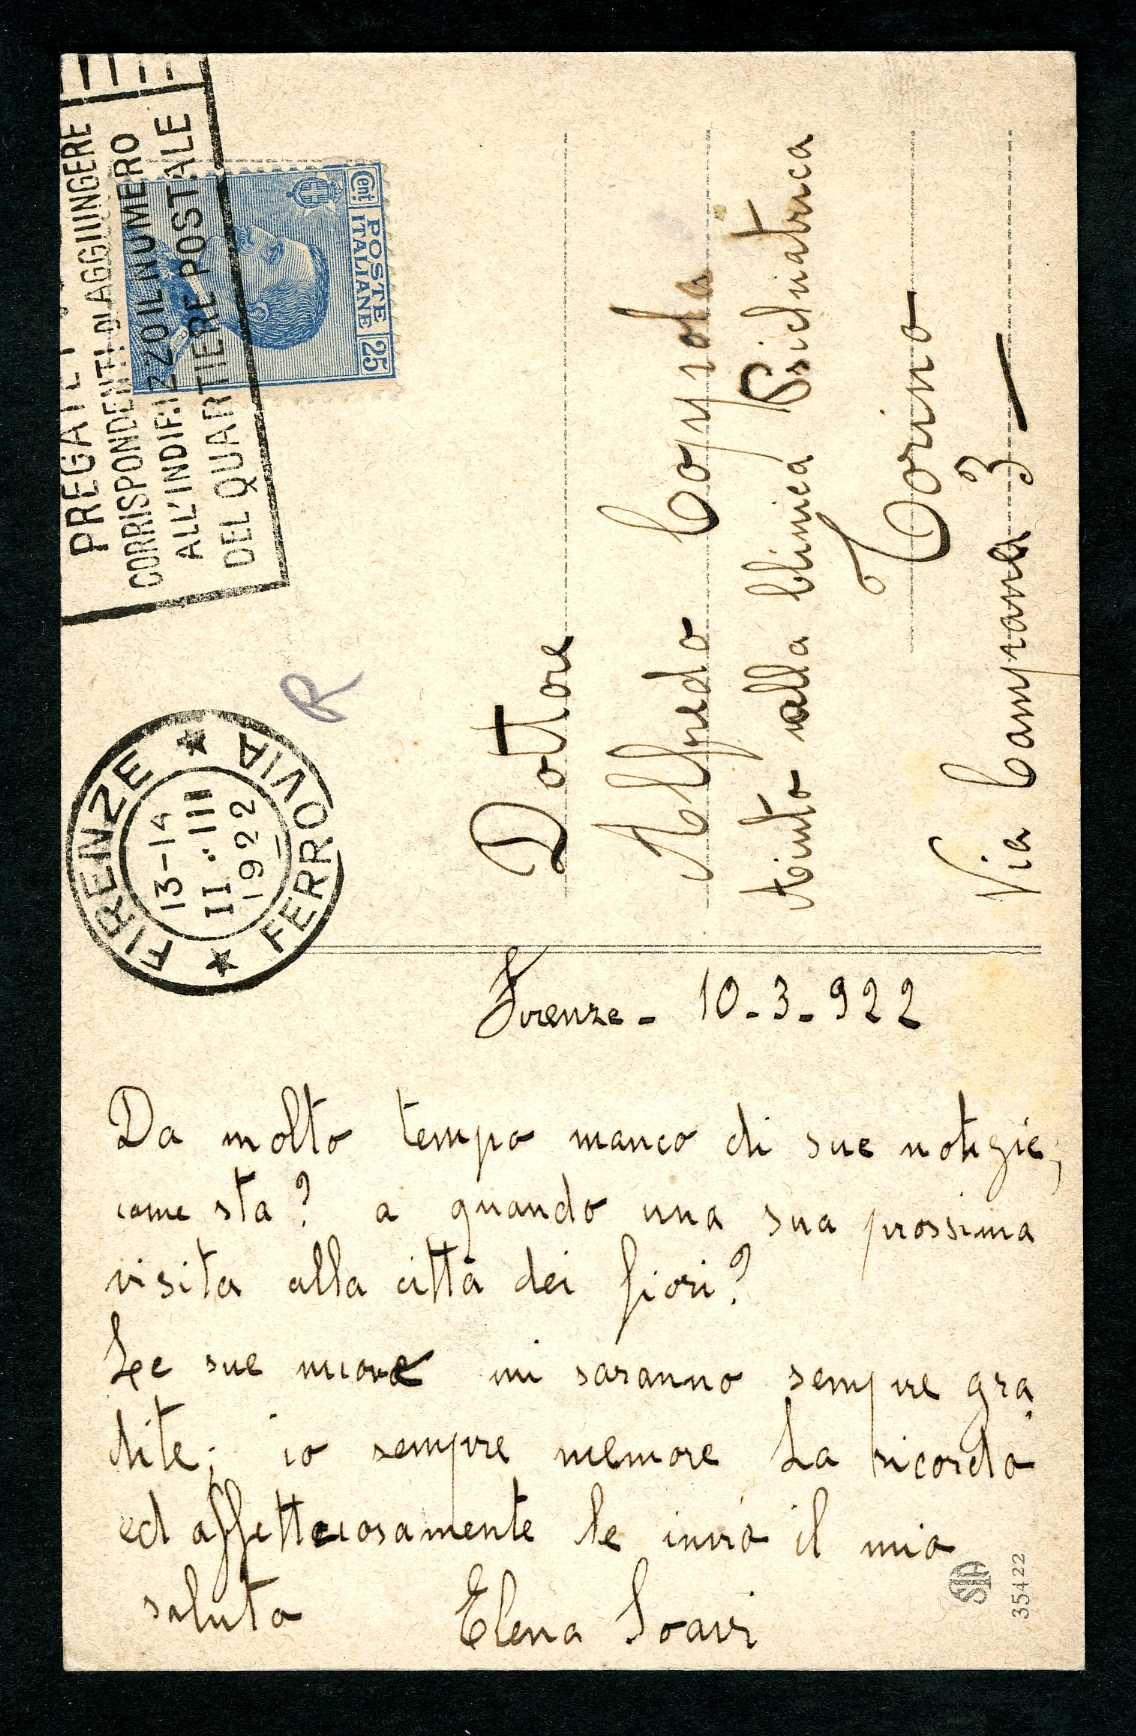 PREGATE I
CORRISPONDENTI DI AGGIUNGERE
ALL'INDIRIZZO IL NUMERO
DEL QUARTIERE POSTALE
Cent. POSTE ITALIANE 25
FIRENZE
13-14
11·III
1922
FERROVIA
R
Dottore
Alfredo Coppola
Aiuto alla Clinica Psichiatrica
Torino
Via Campana 3
Firenze - 10-3-922
Da molto tempo manco di sue notizie,
come sta? a quando una sua prossima
visita alla città dei fiori?
Le sue nuove mi saranno sempre gra
dite; io sempre memore La ricordo
ed affettuosamente le invio il mio
saluto Elena Soavi
35422